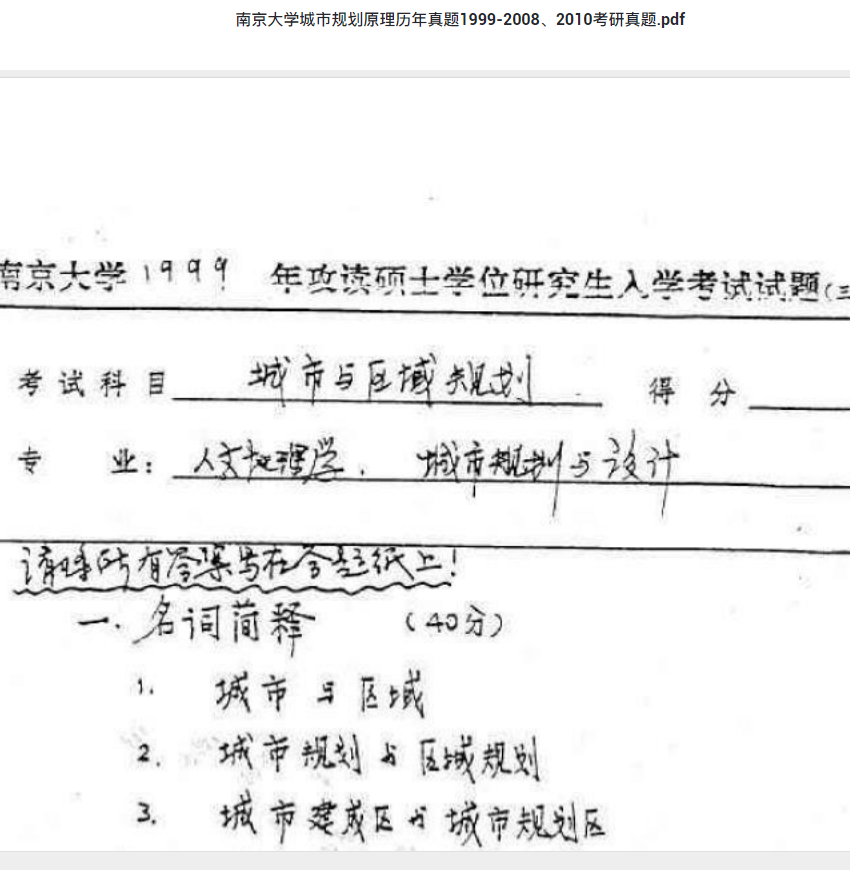 南京大学城市规划原理历年真题1999-2008、2010考研真题.pdf
南京大学1999 年攻读硕士学位研究生入学考试试题(三
考试科目 城市与区域规划 得分
专业: 人文地理学. 城市规划与设计
请将所有答案写在答题纸上!
一. 名词简释 (40分)
1. 城市与区域
2. 城市规划与区域规划
3. 城市建成区与城市规划区